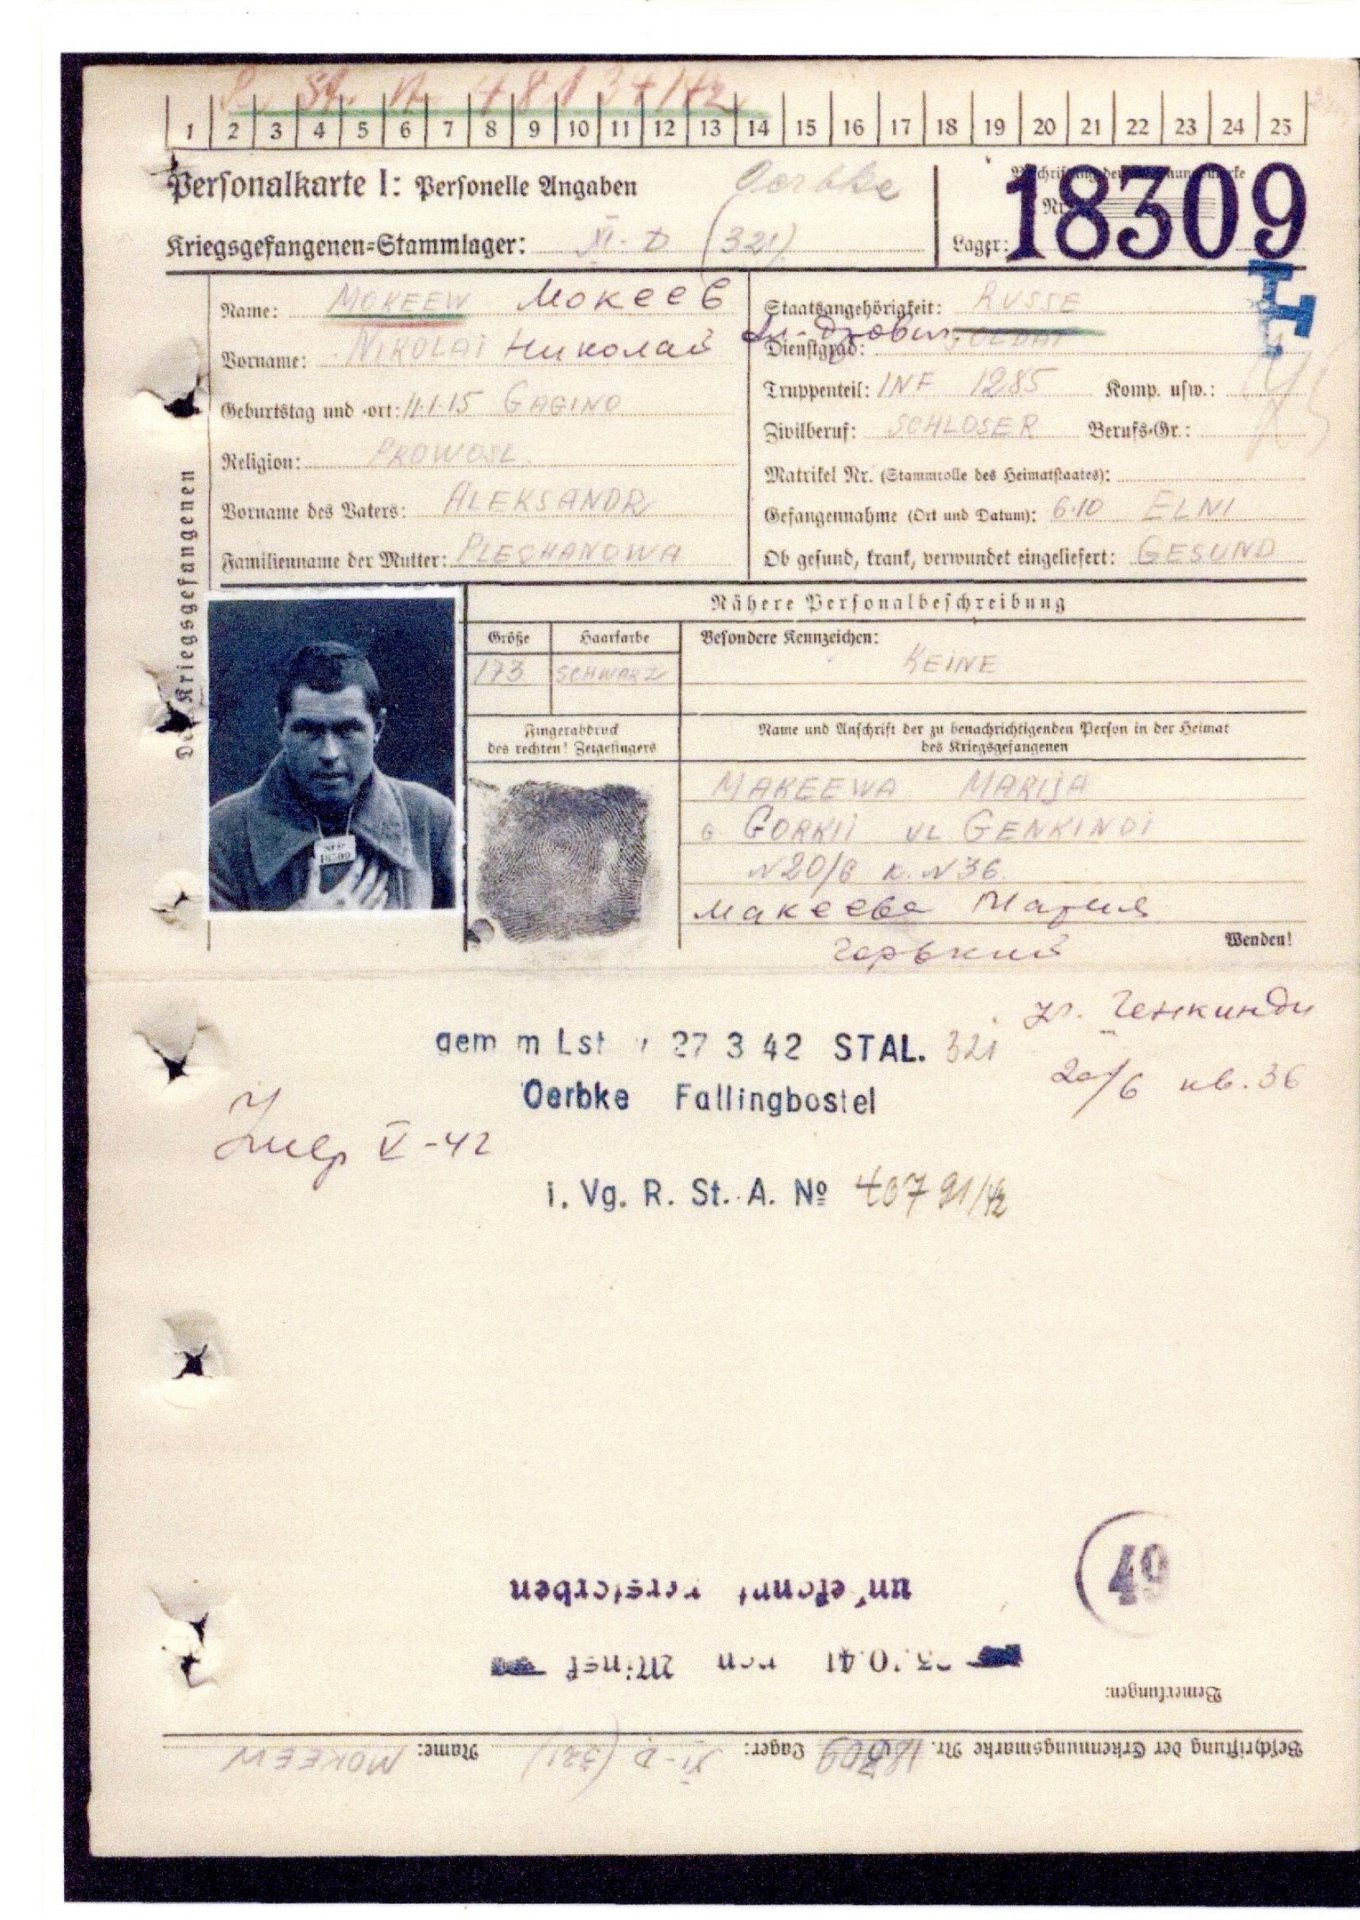 R. St. A. 48134/42
1 2 3 4 5 6 7 8 9 10 11 12 13 14 15 16 17 18 19 20 21 22 23 24 25
Personalkarte I: Personelle Angaben
Oerbke
Kriegsgefangenen-Stammlager: XI-D (321)
Nr.
Lager: 18309
Des Kriegsgefangenen
Name: MOKEEW Мокеев
Vorname: NIKOLAI Николай
Geburtstag und -ort: 11.1.15 GAGINO
Religion: PROWOSL.
Vorname des Vaters: ALEKSANDR
Familienname der Mutter: PLECHANOWA
Staatsangehörigkeit: RUSSE
Dienstgrad: SOLDAT
Truppenteil: INF 1285 Komp. usw.:
Zivilberuf: SCHLOSER Berufs-Gr.:
Matrikel Nr. (Stammrolle des Heimatstaates):
Gefangennahme (Ort und Datum): 6.10 ELNI
Ob gesund, krank, verwundet eingeliefert: GESUND
Nähere Personalbeschreibung
Größe Haarfarbe Besondere Kennzeichen:
173 SCHWARZ KEINE
Fingerabdruck
des rechten! Zeigefingers
Name und Anschrift der zu benachrichtigenden Person in der Heimat
des Kriegsgefangenen
MAKEEWA MARIJA
G GORKII UL GENKINDI
N20/6 K. N36
Макеева Мария
Горький
Wenden!
ул. Генкинди
20/6 кв. 36
gem m Lst v 27 3 42 STAL. 321
Oerbke Fallingbostel
Умер V-42
i. Vg. R. St. A. № 40791/42
49
unbekannt verstorben
.10.41 von Minsk
Bemerkungen:
Beschriftung der Erkennungsmarke Nr. 18309 Lager: XI-D (321) Name: MOKEEW